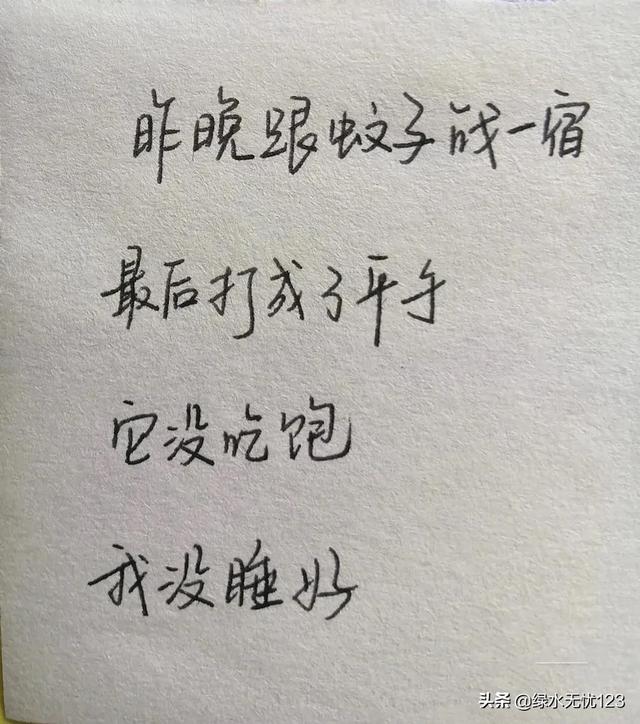 昨晚跟蚊子战一宿
最后打成了平手
它没吃饱
我没睡好
头条 @绿水无忧123